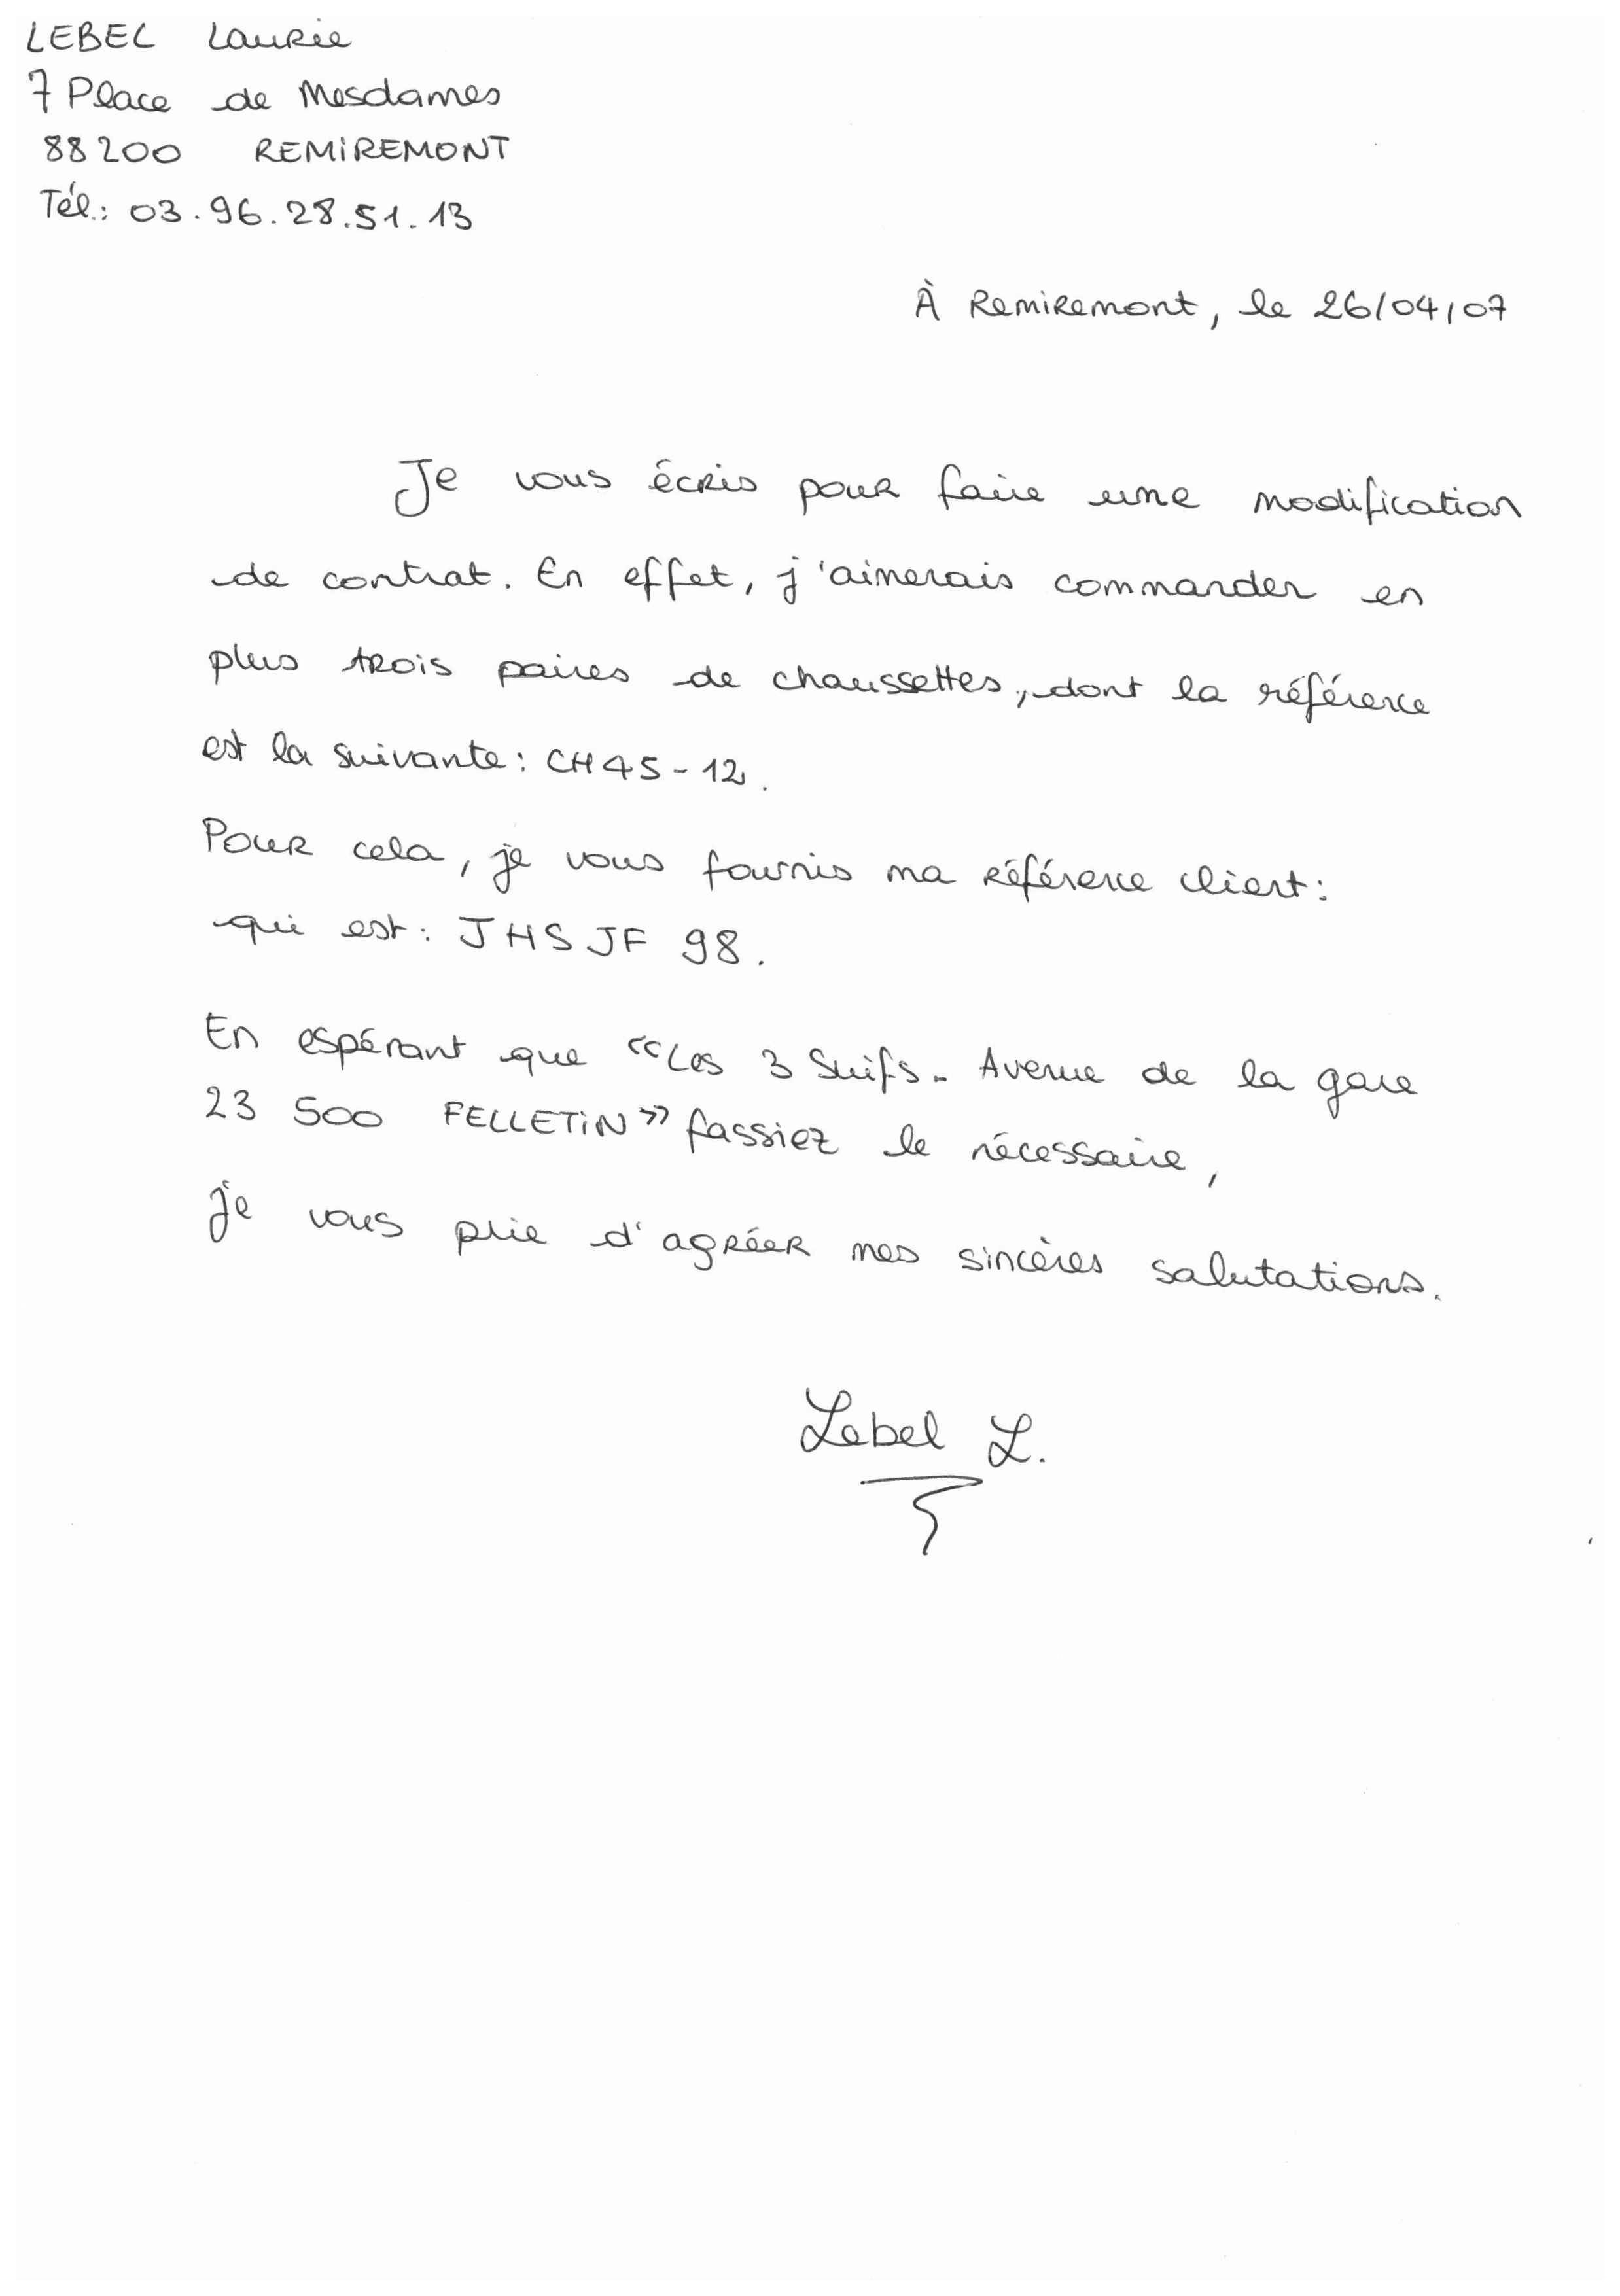 LEBEL Laurie
7 Place de Mesdames
88200 REMIREMONT
Tél.: 03.96.28.51.13
À Remiremont, le 26/04/07
Je vous écris pour faire une modification
de contrat. En effet, j'aimerais commander en
plus trois paires de chaussettes, dont la référence
est la suivante: CH45-12.
Pour cela, je vous fournis ma référence client:
qui est: JHSJF 98.
En espérant que «Les 3 Suifs - Avenue de la gare
23 500 FELLETIN» fassiez le nécessaire,
je vous prie d'agréer mes sincères salutations.
Lebel L.